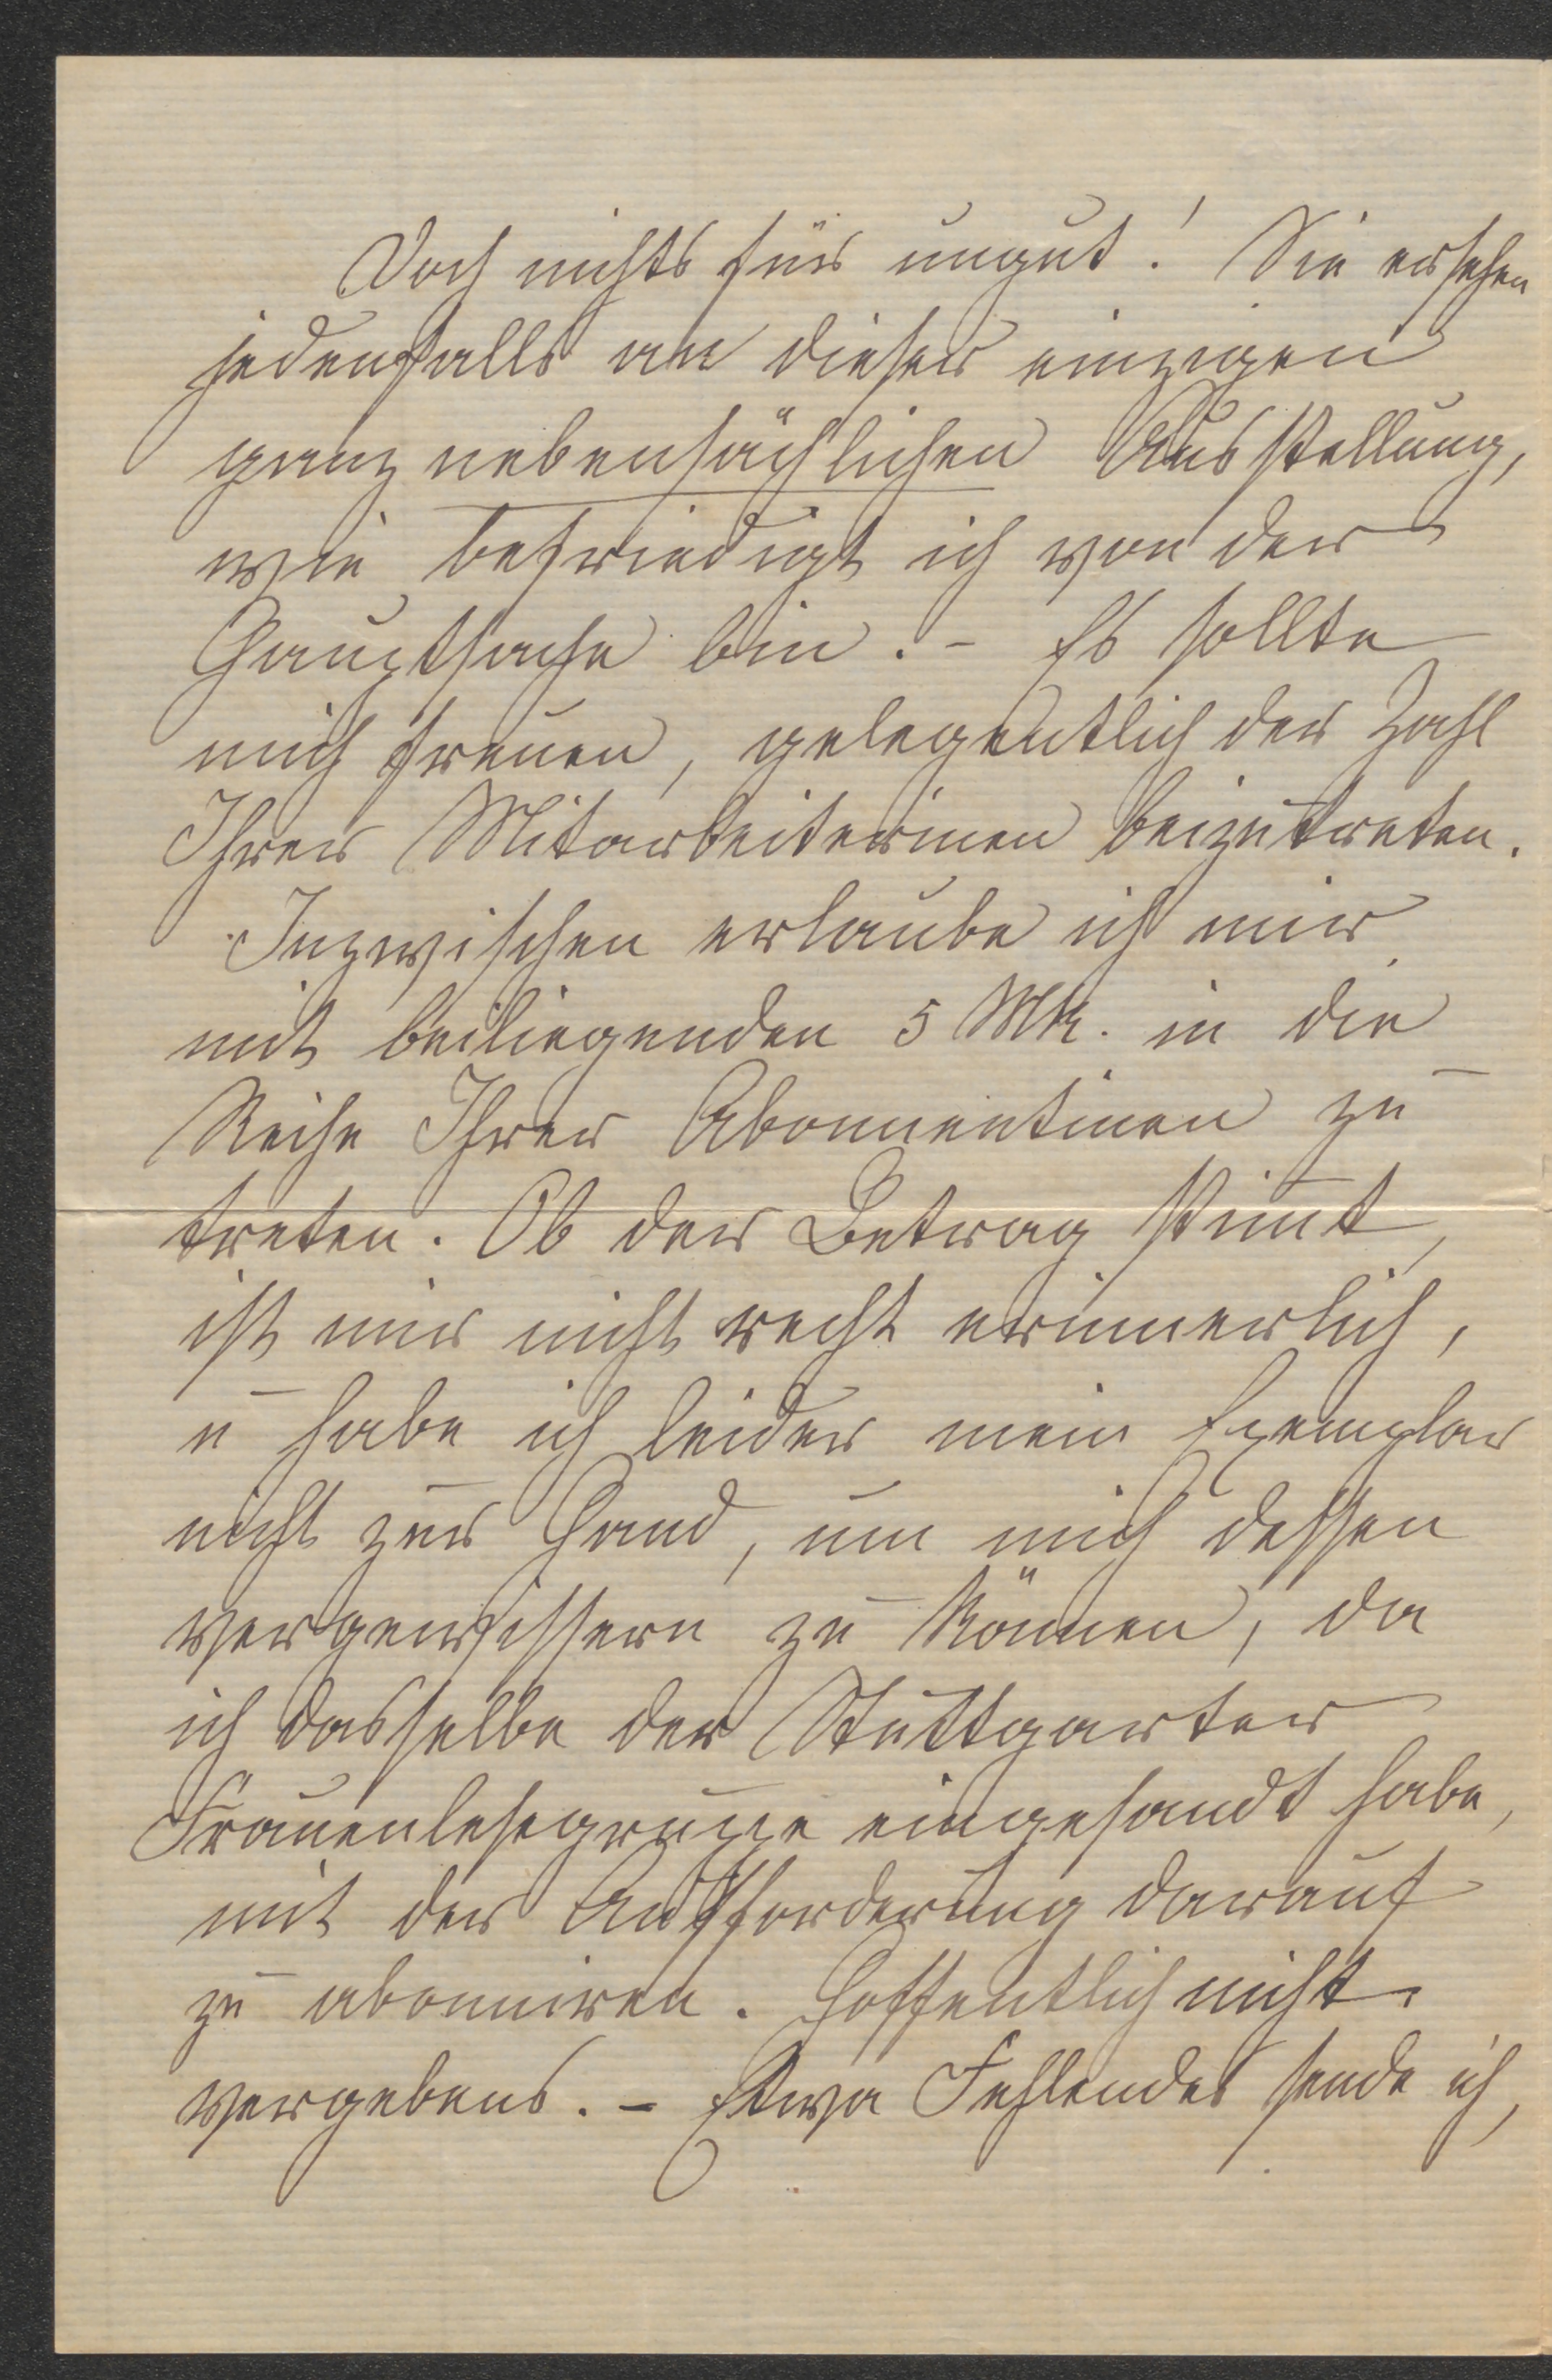 Doch nichts für ungut! Sie ersehen
jedenfalls an dieser einzigen
ganz nebensächlichen Ausstellung,
wie befriedigt ich von der
Hauptsache bin. - Es sollte
mich freuen, gelegentlich der Zahl
Ihrer Mitarbeiterinen beizutreten.
Inzwischen erlaube ich mir
mit beiliegenden 5 Mk. in die
Reihe Ihrer Abonnentinen zu
treten. Ob der Betrag stim̅t,
ist mir nicht recht erinnerlich,
u habe ich leider mein Exemplar
nicht zur Hand, um mich dessen
vergewissern zu können, da
ich dasselbe der Stuttgarter
Frauenlesegruppe eingesandt habe,
mit der Aufforderung darauf
zu abonniren. Hoffentlich nicht
vergebens. - Etwa Fehlendes sende ich,